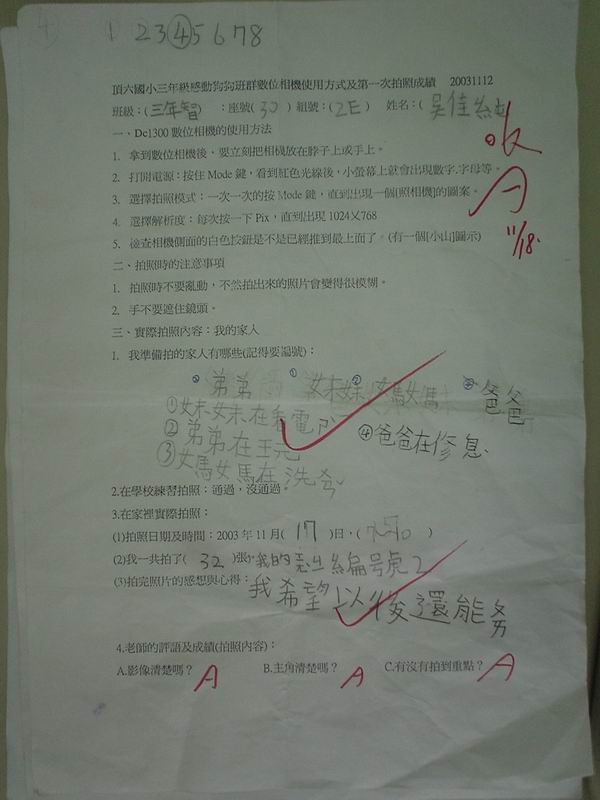 1 2 3 ④ 5 6 7 8
頂六國小三年級感動狗狗班群數位相機使用方式及第一次拍照成績 20031112
班級：(三年智) ：座號(30) 組號：(2E) 姓名：(吳佳
一、Dc1300 數位相機的使用方法
1. 拿到數位相機後，要立刻把相機放在脖子上或手上。
2. 打開電源：按住 Mode 鍵，看到紅色光線後，小螢幕上就會出現數字.字母等。
3. 選擇拍照模式：一次一次的按 Mode 鍵，直到出現一個[照相機]的圖案。
A
4. 選擇解析度：每次按一下 Pix，直到出現 1024X768
11/18.
5. 檢查相機側面的白色按鈕是不是已經推到最上面了。(有一個[小山]圖示)
二、拍照時的注意事項
1. 拍照時不要亂動，不然拍出來的照片會變得很模糊。
2. 手不要遮住鏡頭。
三、實際拍照內容：我的家人
1. 我準備拍的家人有哪些(記得要編號)：
弟弟 ① 妹妹 ② 媽媽 爸爸
①妹妹在看電
②弟弟在玩 ④爸爸在修息.
③媽媽在洗
2.在學校練習拍照：通過，沒通過。
3.在家裡實際拍照：
(1)拍照日期及時間：2003 年 11 月( 17 )日，(
(2)我一共拍了( 32 )張，我的 編號 2
(3)拍完照片的感想與心得：我希望以後還能夠
4.老師的評語及成績(拍照內容)：
A.影像清楚嗎？ A B.主角清楚嗎？ A C.有沒有拍到重點？ A